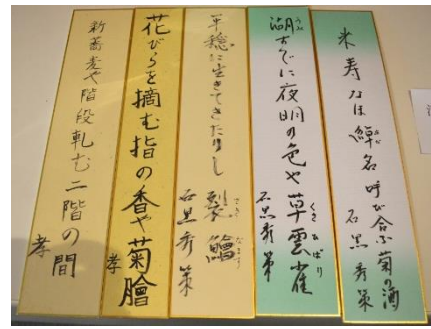 米寿なほ綽名呼び合ふ菊の酒
石黒秀策
湖すでに夜明の色や草雲雀
うみ
くさひばり
石黒秀策
平穏に生きてきたりし裂鱠
なます
石黒秀策
花びらを摘む指の香や菊膾
孝
新蕎麦や階段軋む二階の間
孝